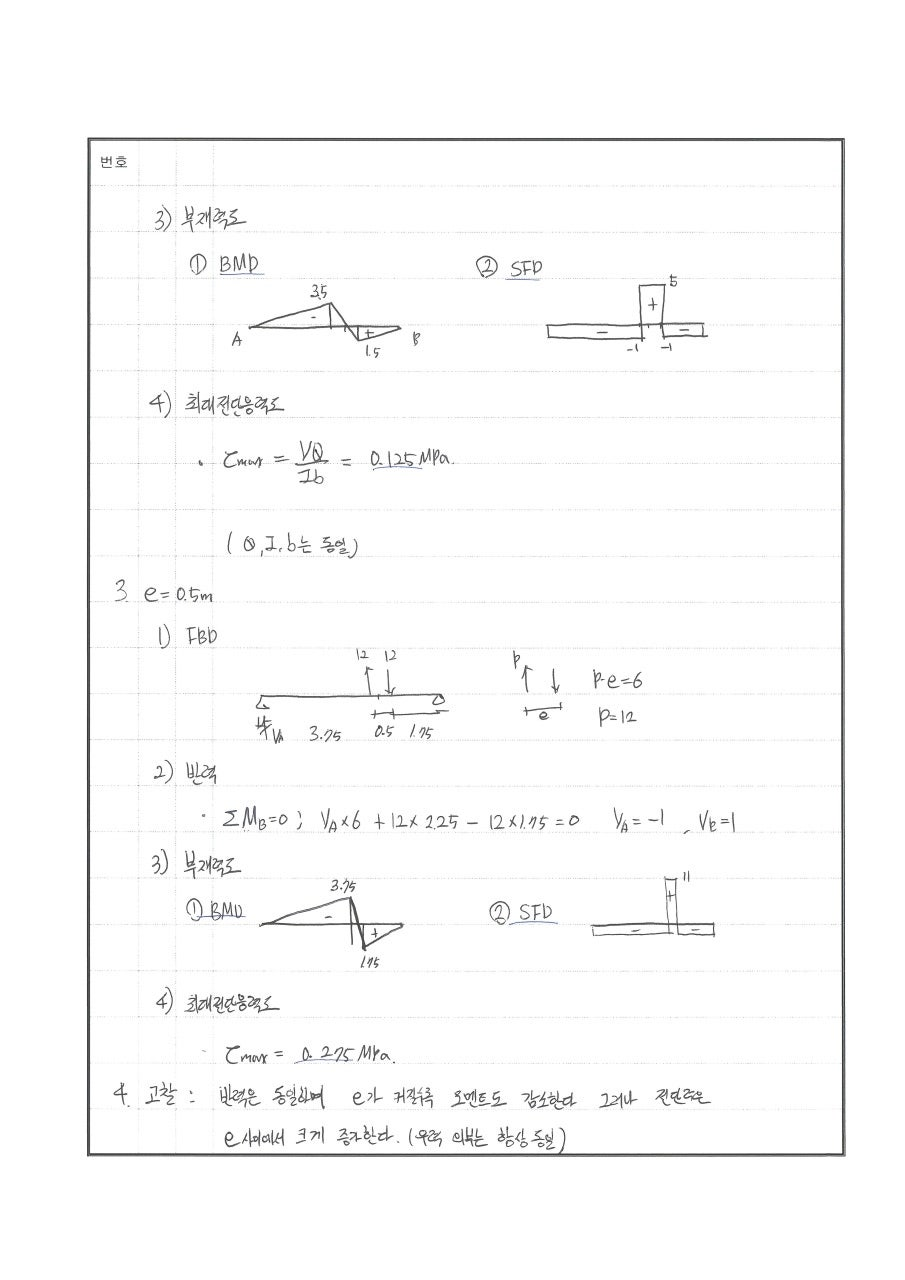 번호
3) 부재력도
① BMD ② SFD
3.5 5
- +
A + B - -
1.5 -1 -1
4) 최대전단응력도
· τmax = VQ/Ib = 0.125 MPa.
(Q, I, b는 동일)
3. e = 0.5m
1) FBD
12 12 P P·e=6
e P=12
VA 3.75 0.5 1.75
2) 반력
· ΣMB=0 ; VA×6 + 12×2.25 - 12×1.75 = 0 VA = -1 , VB = 1
3) 부재력도
3.75 11
① BMD - + ② SFD - + -
1.75
4) 최대전단응력도
· τmax = 0.275 MPa.
4. 고찰 : 반력은 동일하며 e가 커질수록 모멘트도 감소한다 그러나 전단력은
e사이에서 크게 증가한다. (우력 외부는 항상 동일)